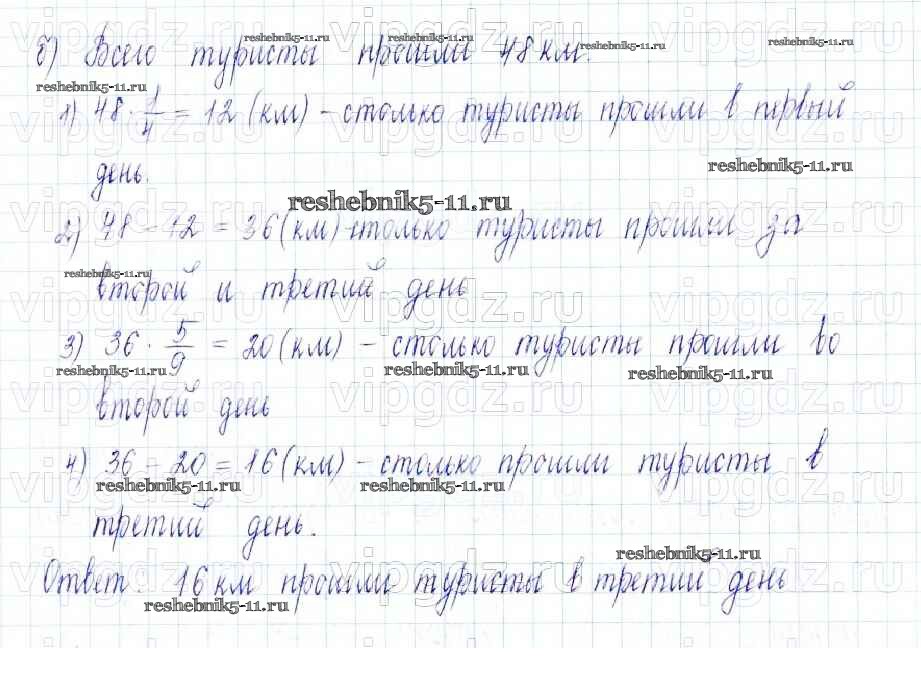 б) Всего туристы прошли 48 км.
1) 48 · 1/4 = 12 (км) - столько туристы прошли в первый
день.
2) 48 - 12 = 36 (км) - столько туристы прошли за
второй и третий день
3) 36 · 5/9 = 20 (км) - столько туристы прошли во
второй день
4) 36 - 20 = 16 (км) - столько прошли туристы в
третий день.
Ответ: 16 км прошли туристы в третий день
reshebnik5-11.ru
vipgdz.ru